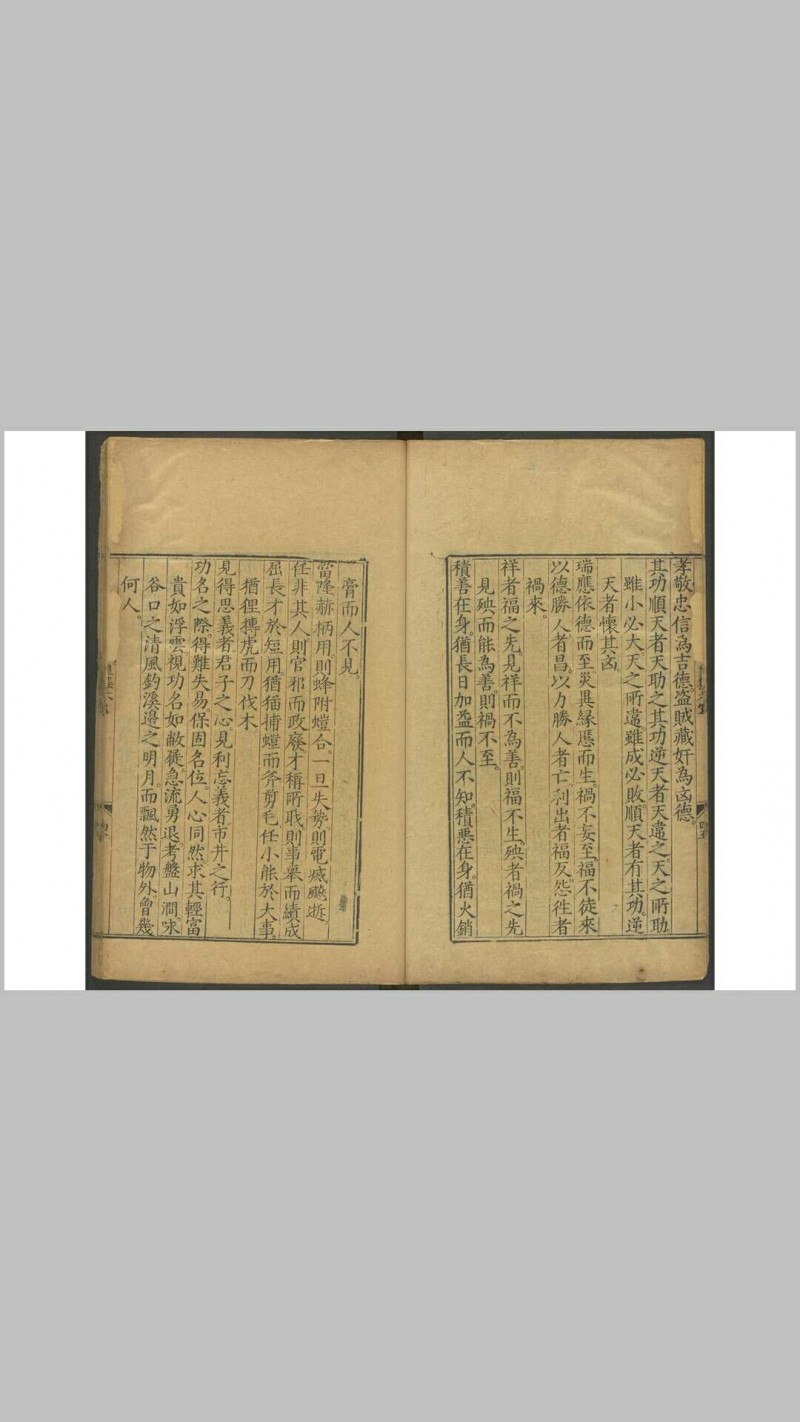 孝敬忠信為吉德。盜賊藏奸為凶德。
其功順天者天助之其功逆天者天違之。天之所助
雖小必大天之所違雖成必敗。順天者有其功。逆
天者懷其凶。
瑞應依德而至災異緣慝而生禍不妄至。福不徒來
以德勝人者昌。以力勝人者亡利出者福反。怨往者
禍來。
祥者福之先。見祥而不為善則福不生。殃者禍之先
見殃而能為善。則禍不至。
積善在身。猶長日加益而人不知。積惡在身猶火銷
膏而人不見。
當隆赫柄用。則蜂附螘合。一旦失勢則電滅飈逝。
任非其人。則官邪而政廢。才稱所職則事舉而績成
屈長才於短用。猶猫捕螳而斧剪毛。任小能於大事。
猶狸搏虎而刀伐木。
見得思義者君子之心見利忘義者市井之行。
功名之際得難失易保固名位。人心同然求其輕富
貴如浮雲。視功名如敝屣。急流勇退。考盤山澗。味
谷口之清風釣溪邉之明月。而飄然于物外。曾幾
何人。